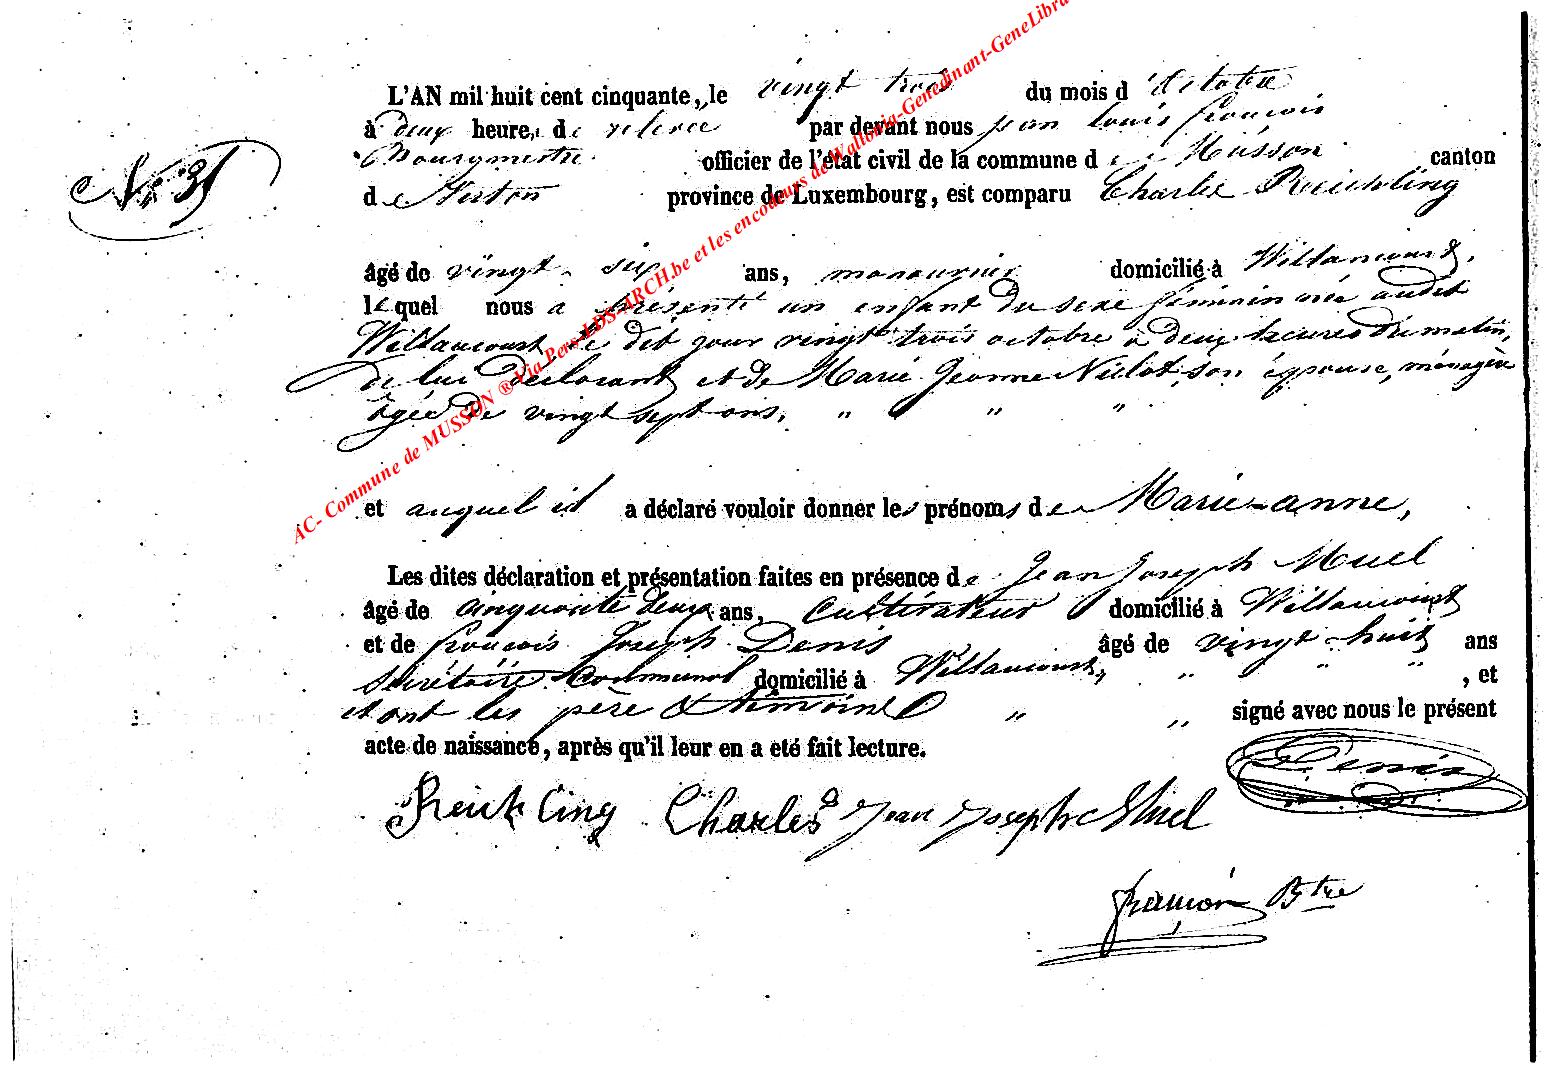 L'AN mil huit cent cinquante, le vingt trois du mois d'Octobre
à deux heures de relevée par devant nous jean louis françois
Bourgmestre officier de l'état civil de la commune de Musson canton
de Virton province de Luxembourg, est comparu Charles Reichling
N° 35
âgé de vingt-six ans, manœuvrier domicilié à Willancourt,
lequel nous a présenté un enfant du sexe féminin née audit
Willancourt le dit jour vingt trois octobre à deux heures du matin,
de lui déclarant et de Marie Jeanne son épouse, ménagère
âgée de vingt sept ans, " " "
et auquel il a déclaré vouloir donner les prénoms de Marie-anne,
Les dites déclaration et présentation faites en présence de Jean Joseph Muel
âgé de cinquante deux ans, cultivateur domicilié à Willancourt
et de françois Joseph Denis âgé de vingt-huit ans
Secrétaire Communal domicilié à Willancourt, " " " , et
et ont les père & témoins " " signé avec nous le présent
acte de naissance, après qu'il leur en a eté fait lecture.
Denis
Reichling Charles Jean Joseph Muel
françois Bstre
AC- Commune de MUSSON ® Via Pers LDS-ARCH.be et les encodeurs de Wallonia-Genedinant-GeneLibra